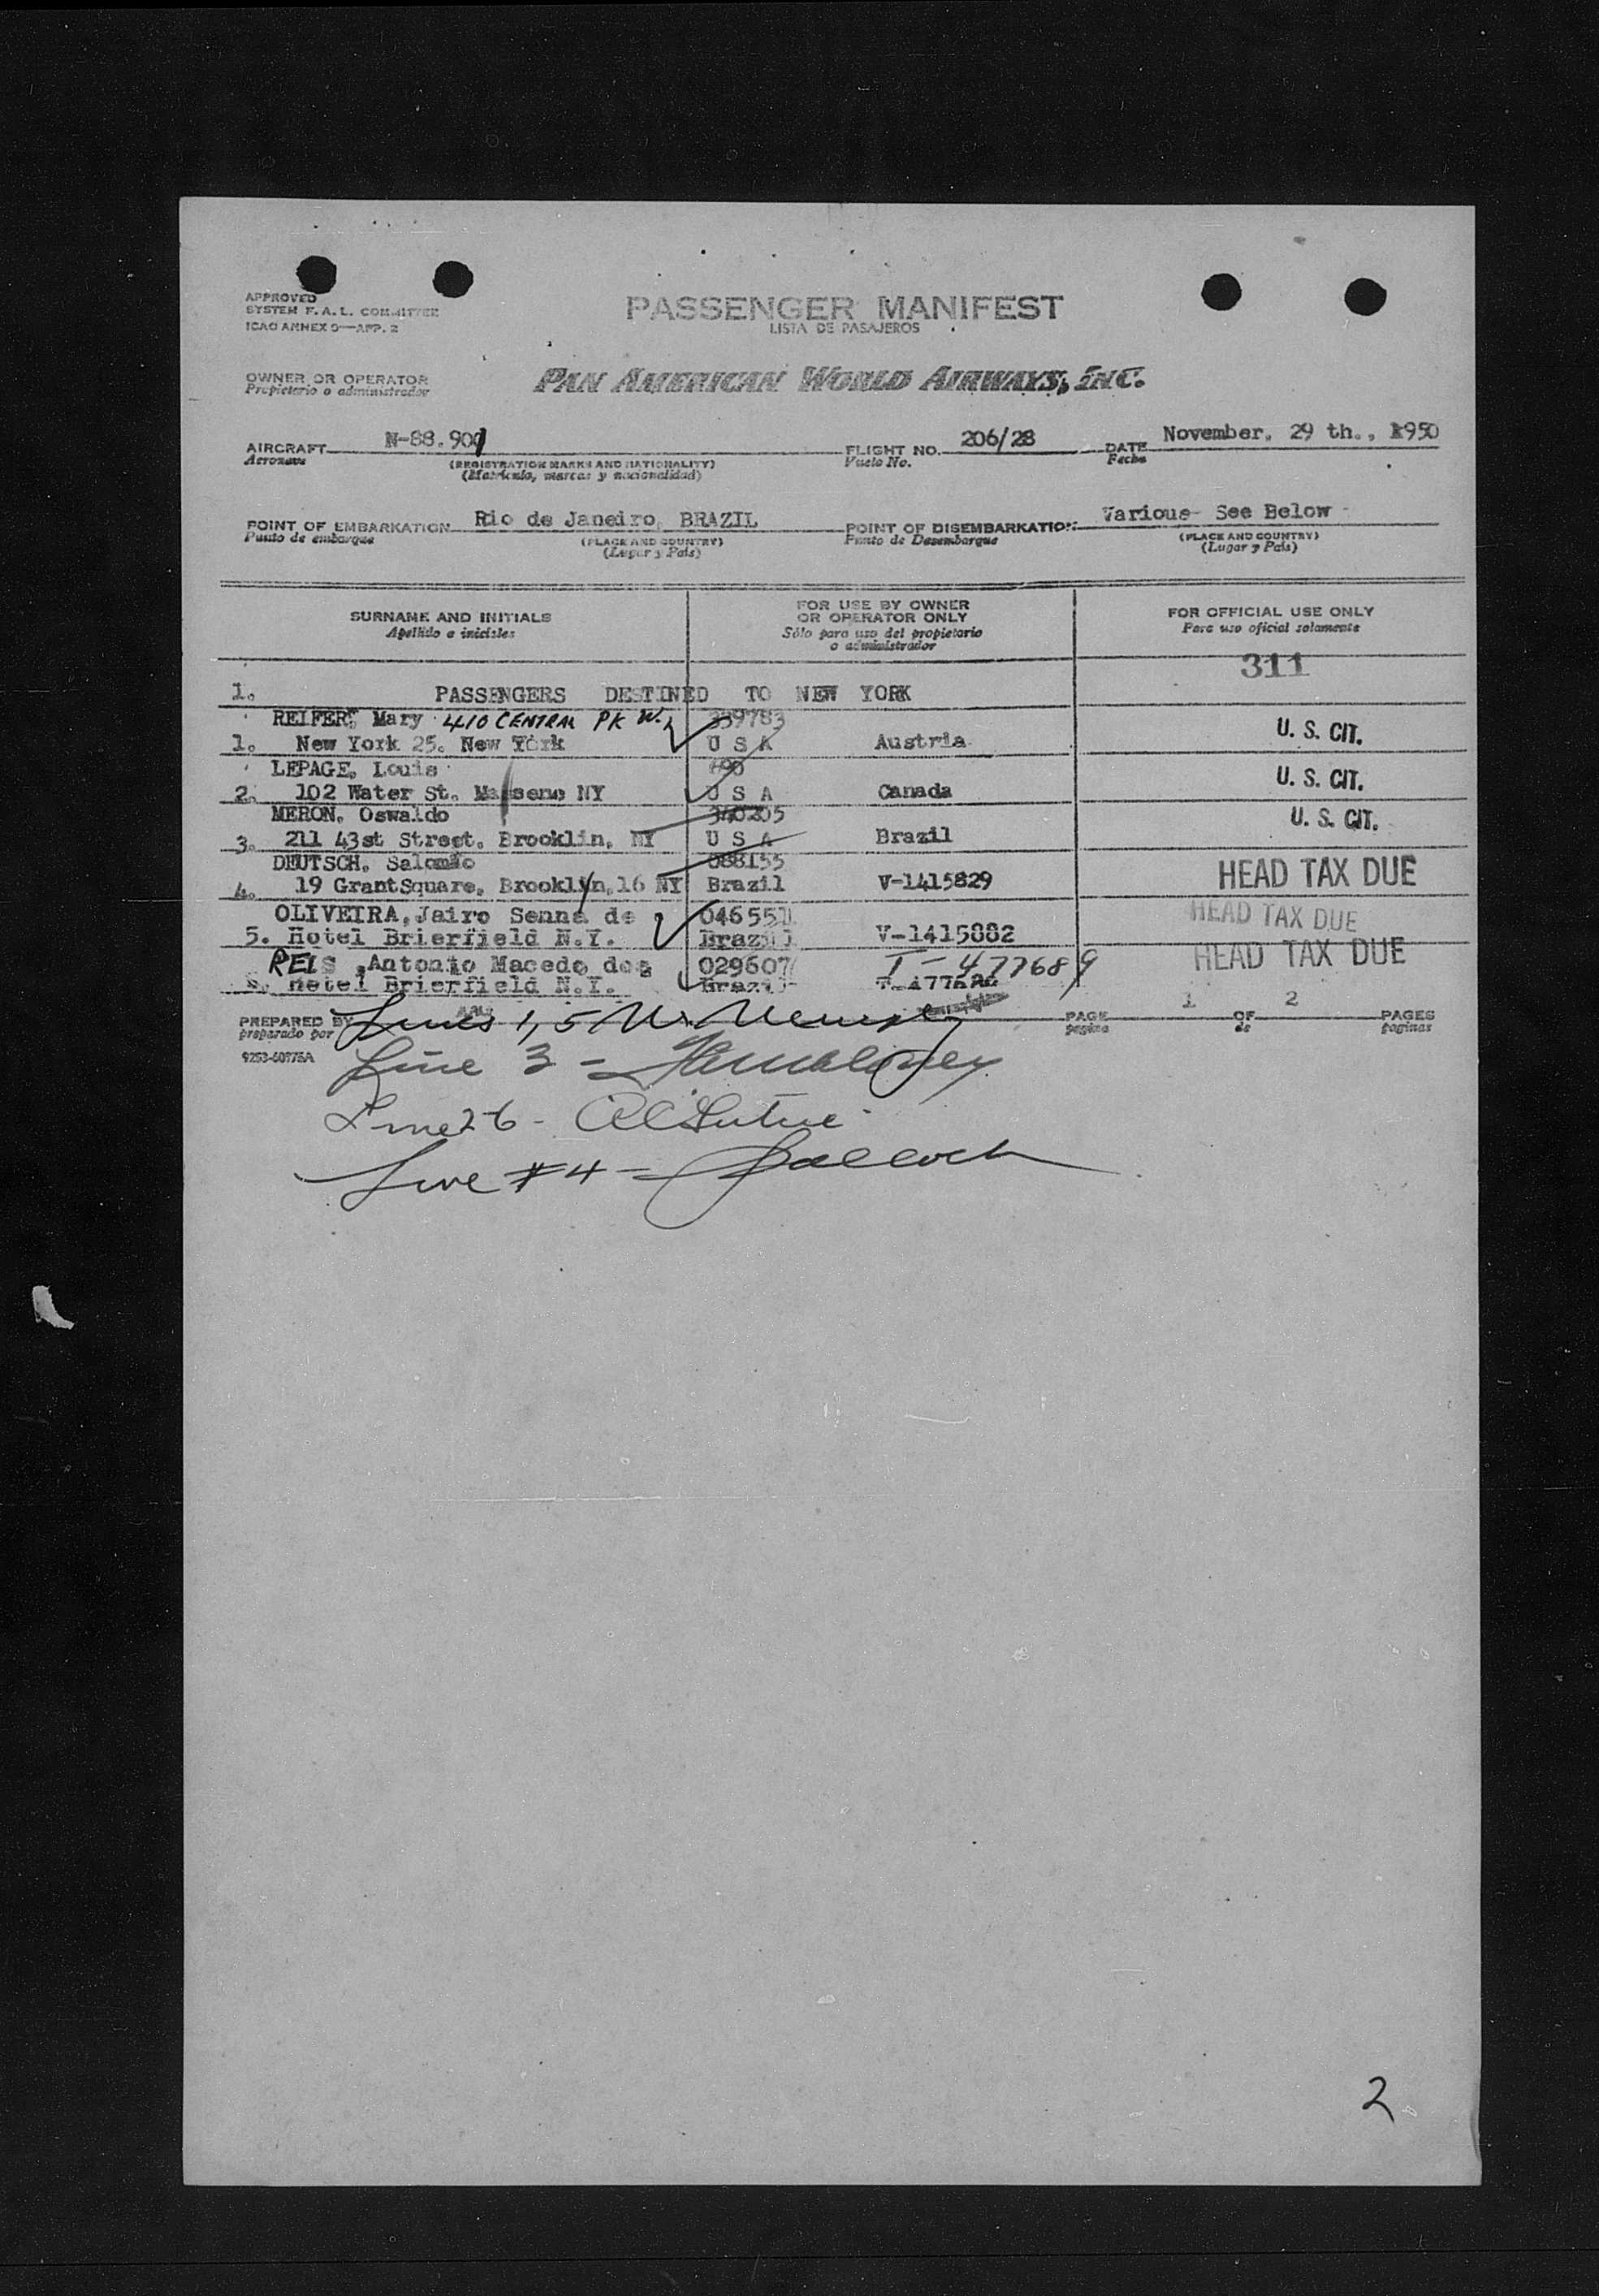 APPROVED
SYSTEM F.A.L. COMMITTEE
ICAO ANNEX 9—APP. 2
PASSENGER MANIFEST
LISTA DE PASAJEROS
OWNER OR OPERATOR
Propietario o administrador
PAN AMERICAN WORLD AIRWAYS, INC.
AIRCRAFT N-88.901 FLIGHT NO. 206/28 DATE November, 29 th., 1950
Aeronave (REGISTRATION MARKS AND NATIONALITY) Vuelo No. Fecha
(Matrícula, marcas y nacionalidad)
POINT OF EMBARKATION Rio de Janeiro, BRAZIL POINT OF DISEMBARKATION Various- See Below -
Punto de embarque (PLACE AND COUNTRY) Punto de Desembarque (PLACE AND COUNTRY)
(Lugar y País) (Lugar y País)
SURNAME AND INITIALS FOR USE BY OWNER OR OPERATOR ONLY FOR OFFICIAL USE ONLY
Apellido e iniciales Sólo para uso del propietario o administrador Para uso oficial solamente
311
1. PASSENGERS DESTINED TO NEW YORK
REIFER, Mary 410 CENTRAL PK W. 339783
1. New York 25. New York U S A Austria U. S. CIT.
LEPAGE, Louis 490
2. 102 Water St. Massena NY U S A Canada U. S. CIT.
MERON, Oswaldo 340205
3. 211 43st Street, Brooklin, NY U S A Brazil U. S. CIT.
DEUTSCH, Salomão 088155
4. 19 GrantSquare, Brooklyn,16 NY Brazil V-1415829 HEAD TAX DUE
OLIVEIRA, Jairo Senna de 046551 HEAD TAX DUE
5. Hotel Brierfield N.Y. Brazil V-1415882
REIS, Antonio Macedo dos 029607 T-477689 HEAD TAX DUE
Hotel Brierfield N.Y. Brazil
PREPARED BY Lines 1, 5 PAGE 1 OF 2 PAGES
preparado por página de páginas
9253-60775A
Line 3 -
Line 2 6 -
Line #4 -
2